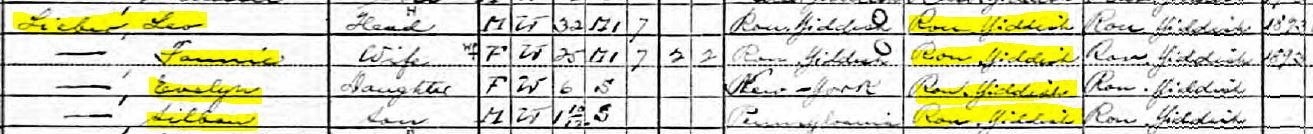 Lieber, Leo Head M W 32 M1 7 Rou. Yiddish Rou. Yiddish Rou. Yiddish
— Fannie Wife F W 25 M1 7 2 2 Rou Yiddish Rou. Yiddish Rou. Yiddish
— Evelyn Daughter F W 6 S New-York Rou. Yiddish Rou. Yiddish
— Son M W 1 10/12 S Pennsylvania Rou. Yiddish Rou. Yiddish